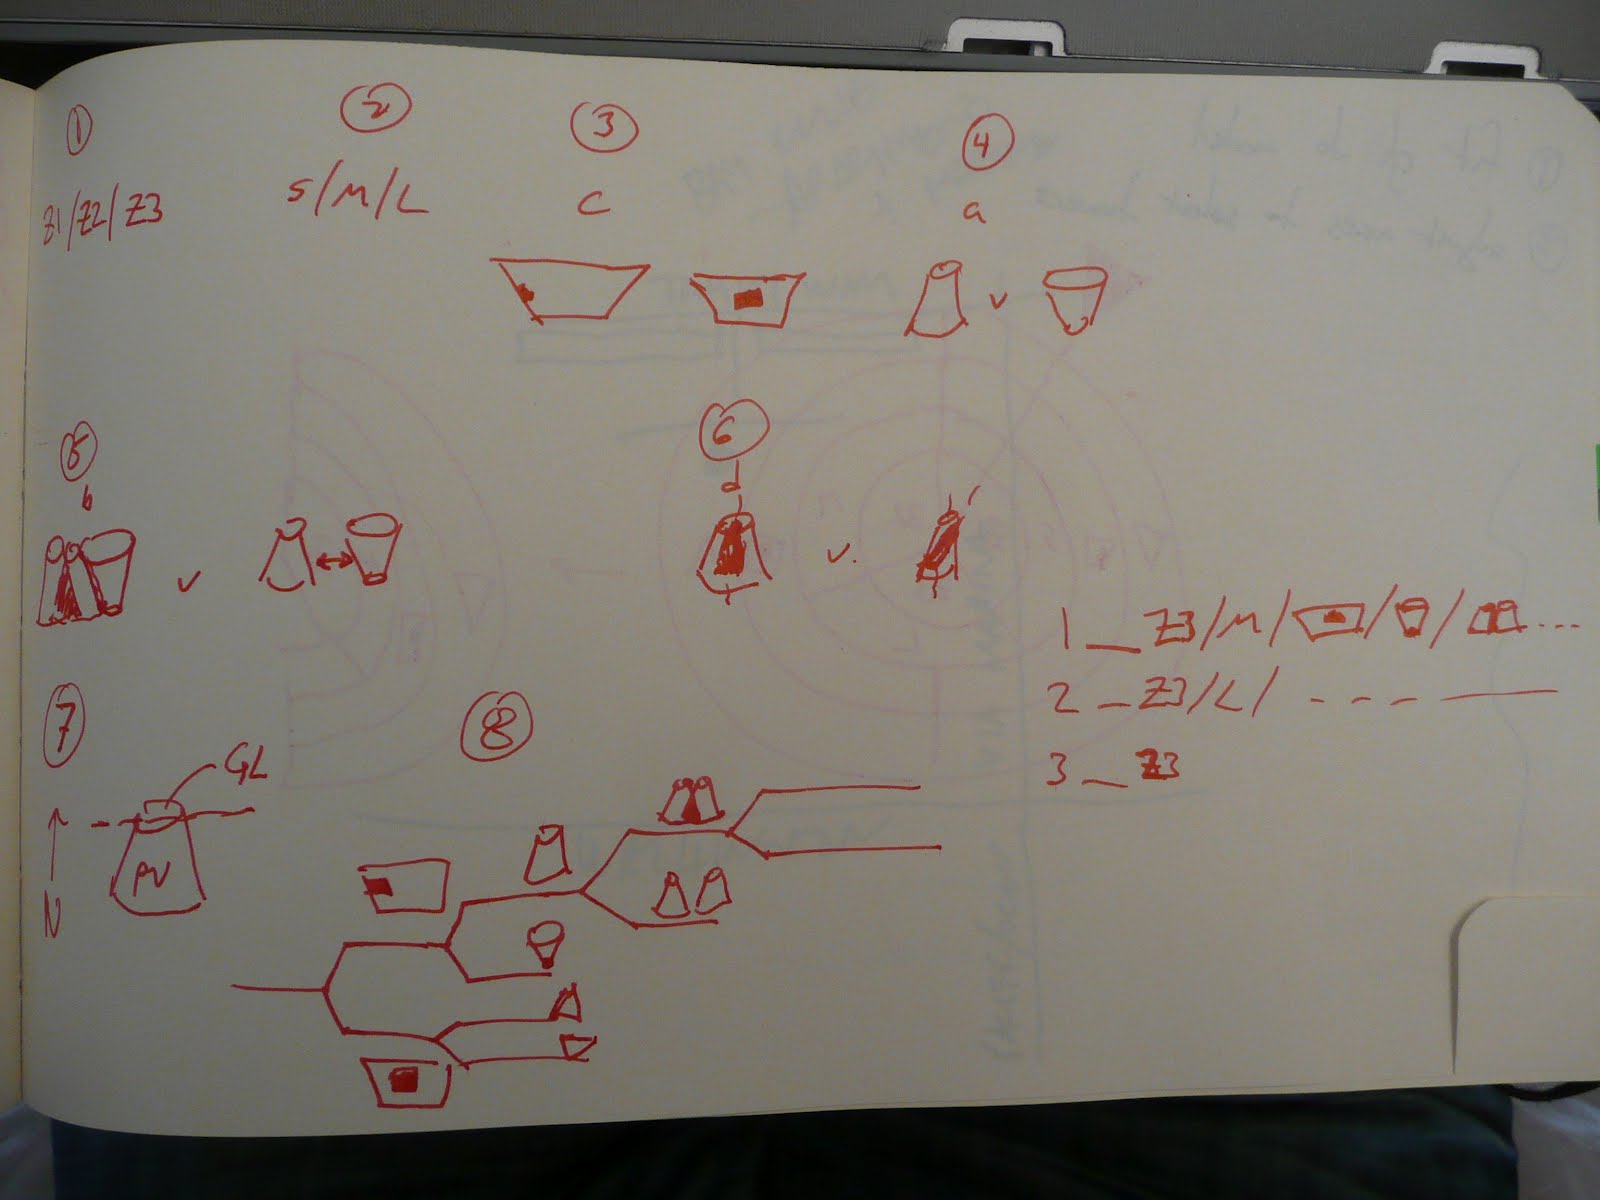 1
Z1/Z2/Z3
2
S/M/L
3
c
4
a
v
5
b
v
6
d
v.
7
GL
PV
N
8
1 _ Z3/M/ / / ...
2 _ Z3/L/ - - - —
3 _ Z3